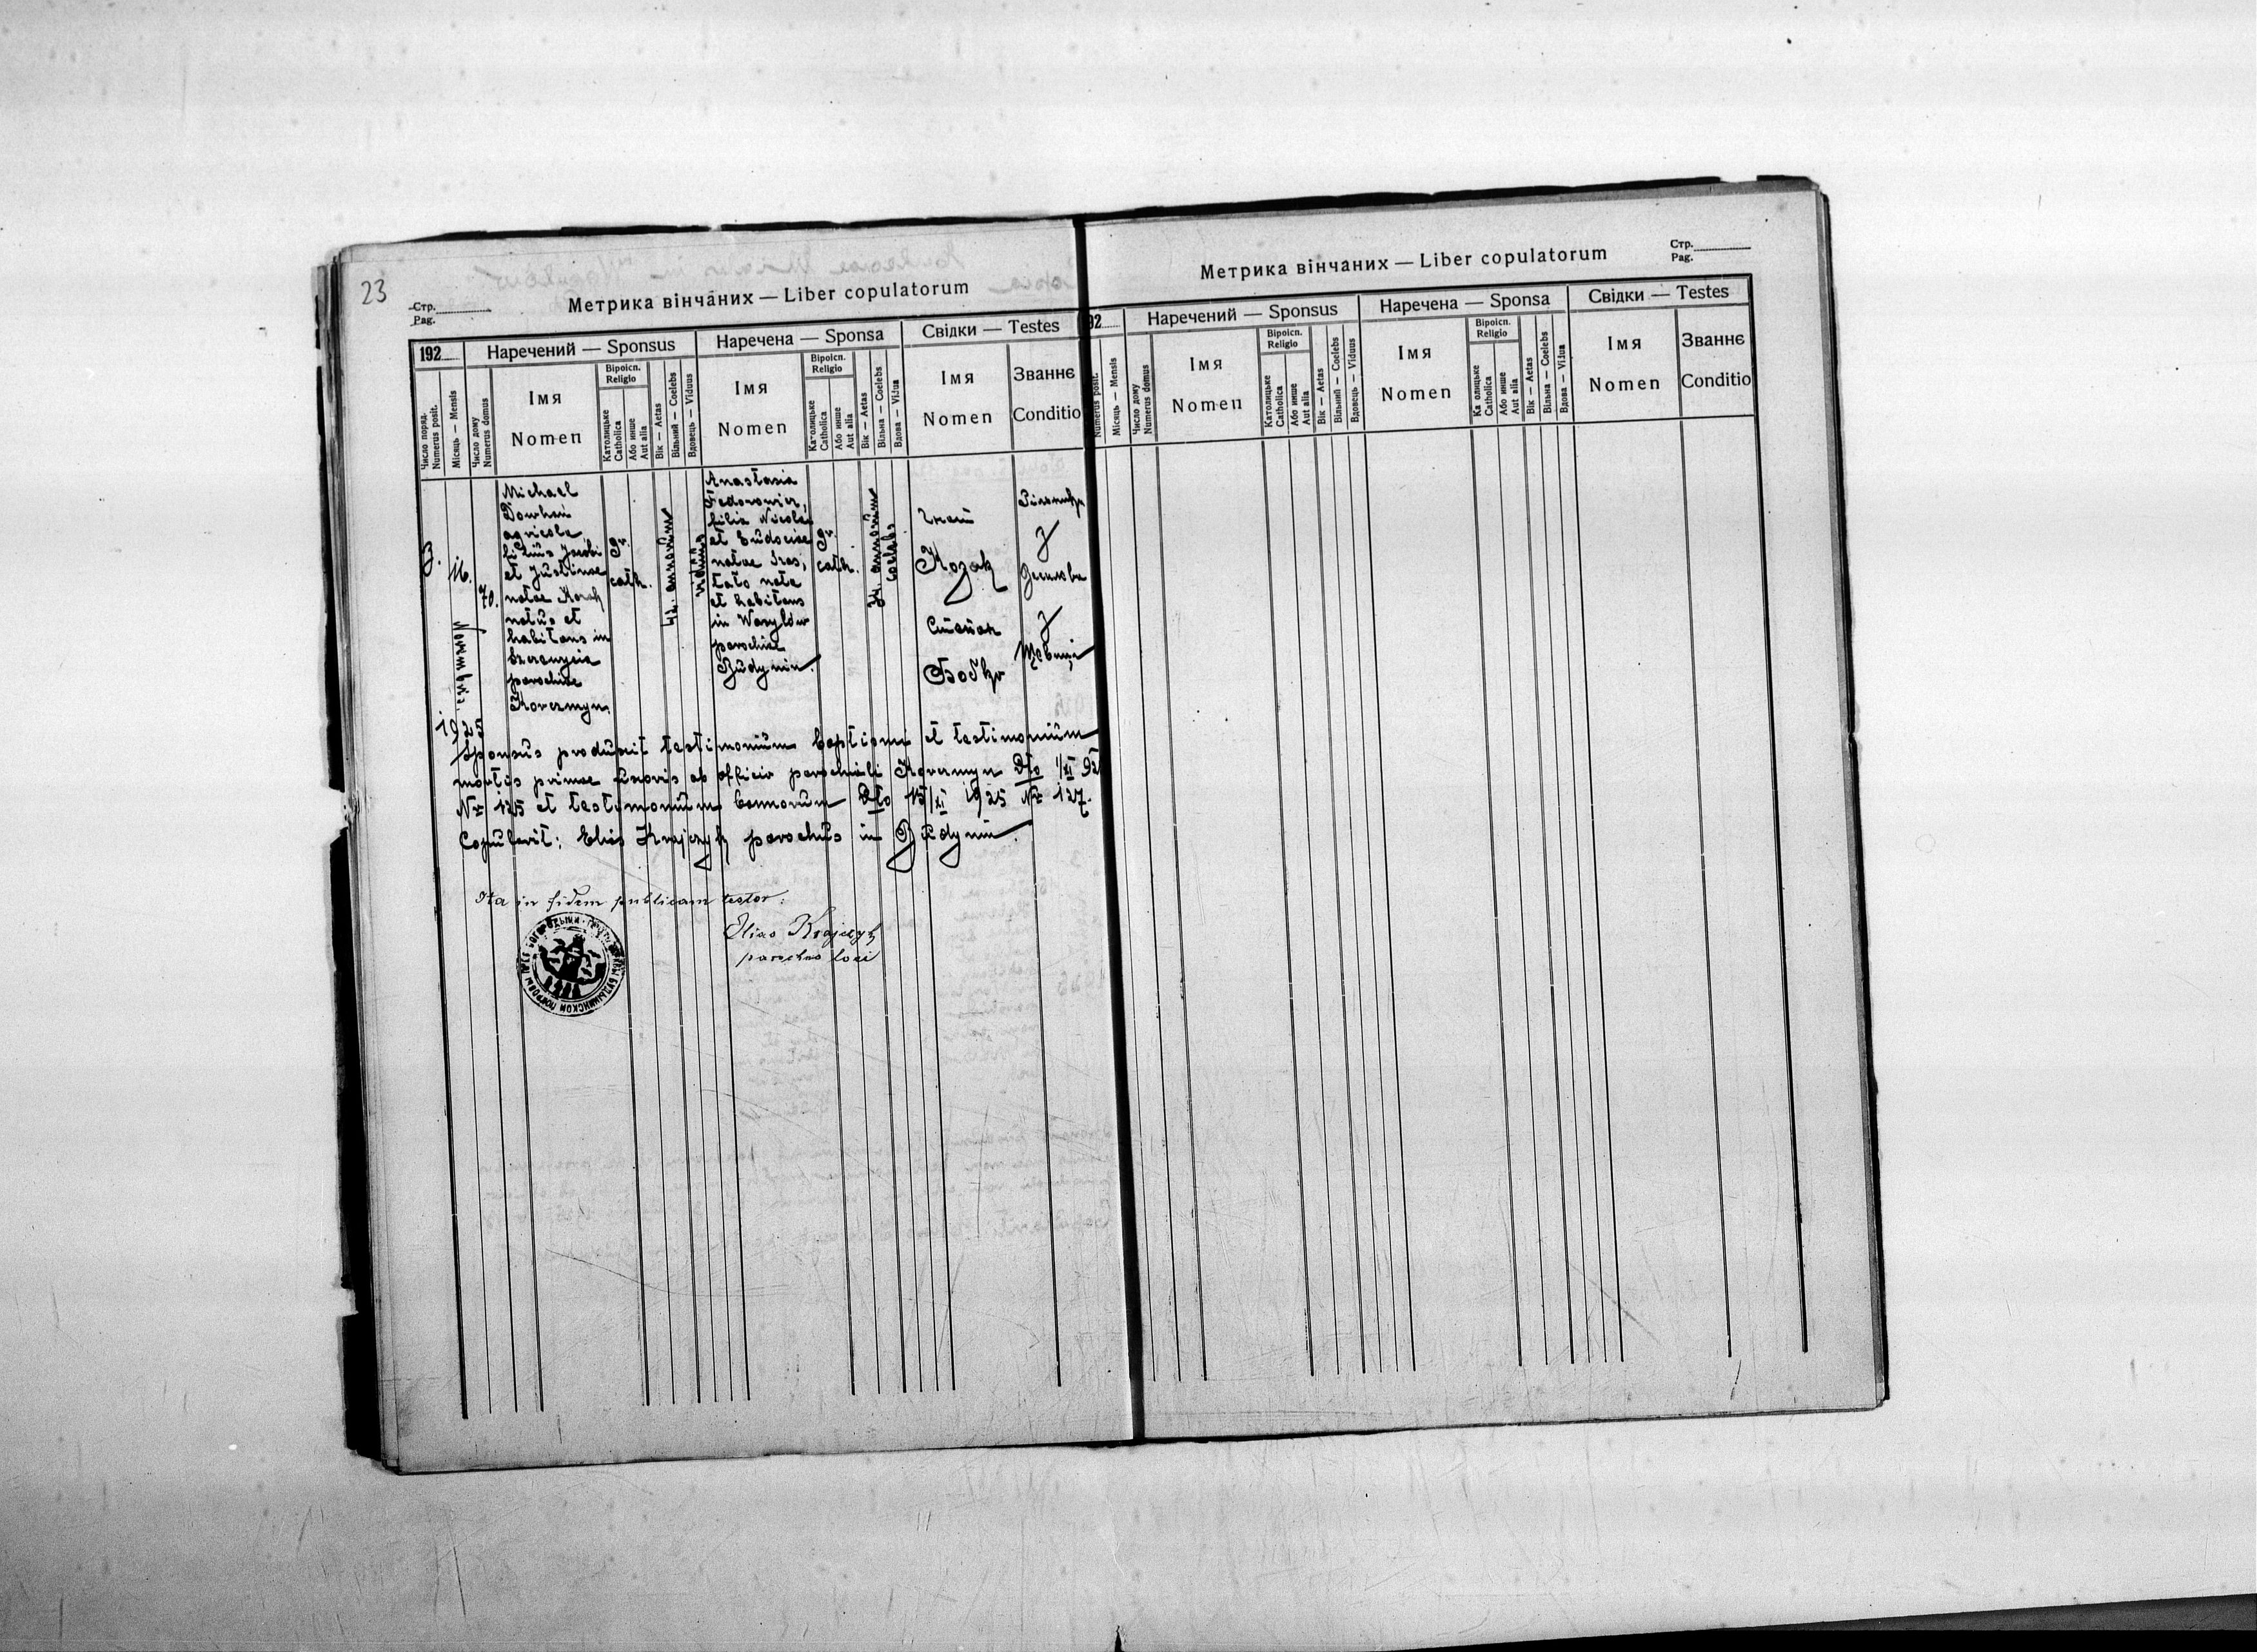 23
Стр.
Pag.
Метрика вінчаних — Liber copulatorum
192
Наречений — Sponsus
Наречена — Sponsa
Свідки — Testes
Число поряд.
Numerus posit.
Місяць — Mensis
Число дому
Numerus domus
Імя
Nomen
Віроісп.
Religio
Католицьке
Catholica
Або инше
Aut alia
Вік — Aetas
Вільний — Coelebs
Вдовець — Viduus
Імя
Nomen
Віроісп.
Religio
Католицьке
Catholica
Або инше
Aut alia
Вік — Aetas
Вільна — Coelebs
Вдова — Vidua
Імя
Nomen
Званнє
Conditio
3.
16.
Novembri
1925
70.
Michael
Dowhan
agricola
filius Jacobi
et Justinae
natae Kozak
natus et
habitans in
parochiae
Korczmyn.
gr.
cath.
42. annorum
viduus
Anastasia
Fedorowicz,
filia Nicolai
et Eudociae
natae Iras,
nata
et habitans
in Wasylów
parochiae
Budynin.
gr.
cath.
34. annorum
coelebs
Гнат
Козак
з
Степан
Бобко
з
Sponsus produxit testimonium baptismi et testimonium
mortis primae uxoris ab officio parochiali Korczmyn Dto 1/XI 925
Nr 125 et testimonium bannorum Dto 15/XI 1925 Nr 127.
Copulavit: Elias Krajczyk parochus in Budynin.
Ita in fidem publicam testor:
Elias Krajczyk
parochus loci
Стр.
Pag.
Метрика вінчаних — Liber copulatorum
92
Наречений — Sponsus
Наречена — Sponsa
Свідки — Testes
Numerus posit.
Місяць — Mensis
Число дому
Numerus domus
Імя
Nomen
Віроісп.
Religio
Католицьке
Catholica
Або инше
Aut alia
Вік — Aetas
Вільний — Coelebs
Вдовець — Viduus
Імя
Nomen
Віроісп.
Religio
Ка олицьке
Catholica
Або инше
Aut alia
Вік — Aetas
Вільна — Coelebs
Вдова — Vidua
Імя
Nomen
Званнє
Conditio